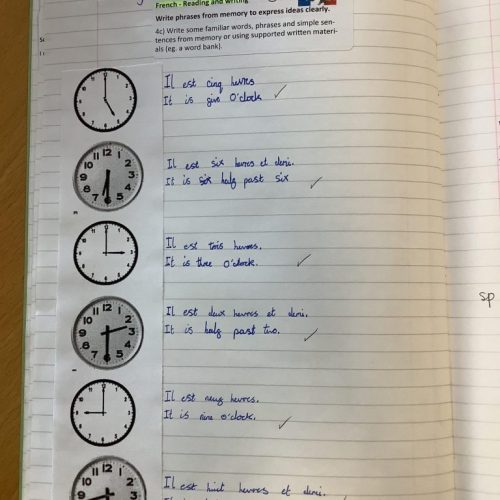 French - Reading and writing
Write phrases from memory to express ideas clearly.
4c) Write some familiar words, phrases and simple sen-
tences from memory or using supported written materi-
als (eg. a word bank).
Il est cinq heures
It is five O'clock
Il est six heures et demi.
It is six half past six
Il est trois heures.
It is three O'clock.
Il est deux heures et demi.
It is half past two.
Il est neuf heures.
It is nine o'clock.
sp
Il est huit heures et demi.